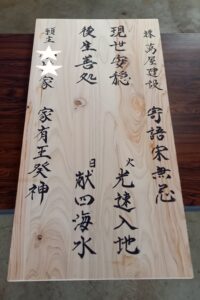 ㈱萬屋建設　寄語宋無忌
現世安穏　火光速入地
後生善処　日献四海水
願主　家　家有壬癸神